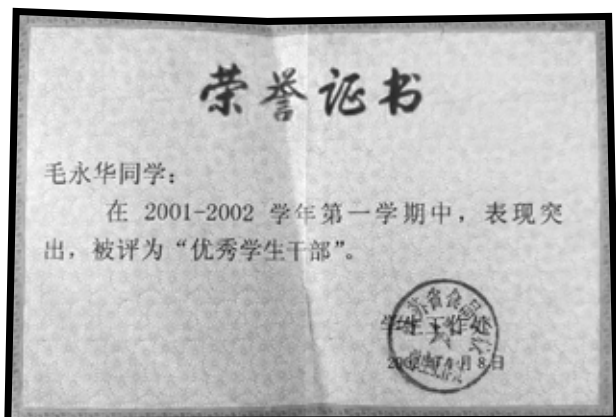 荣誉证书
毛永华同学：
在 2001-2002 学年第一学期中，表现突
出，被评为“优秀学生干部”。
学生工作处
月8日